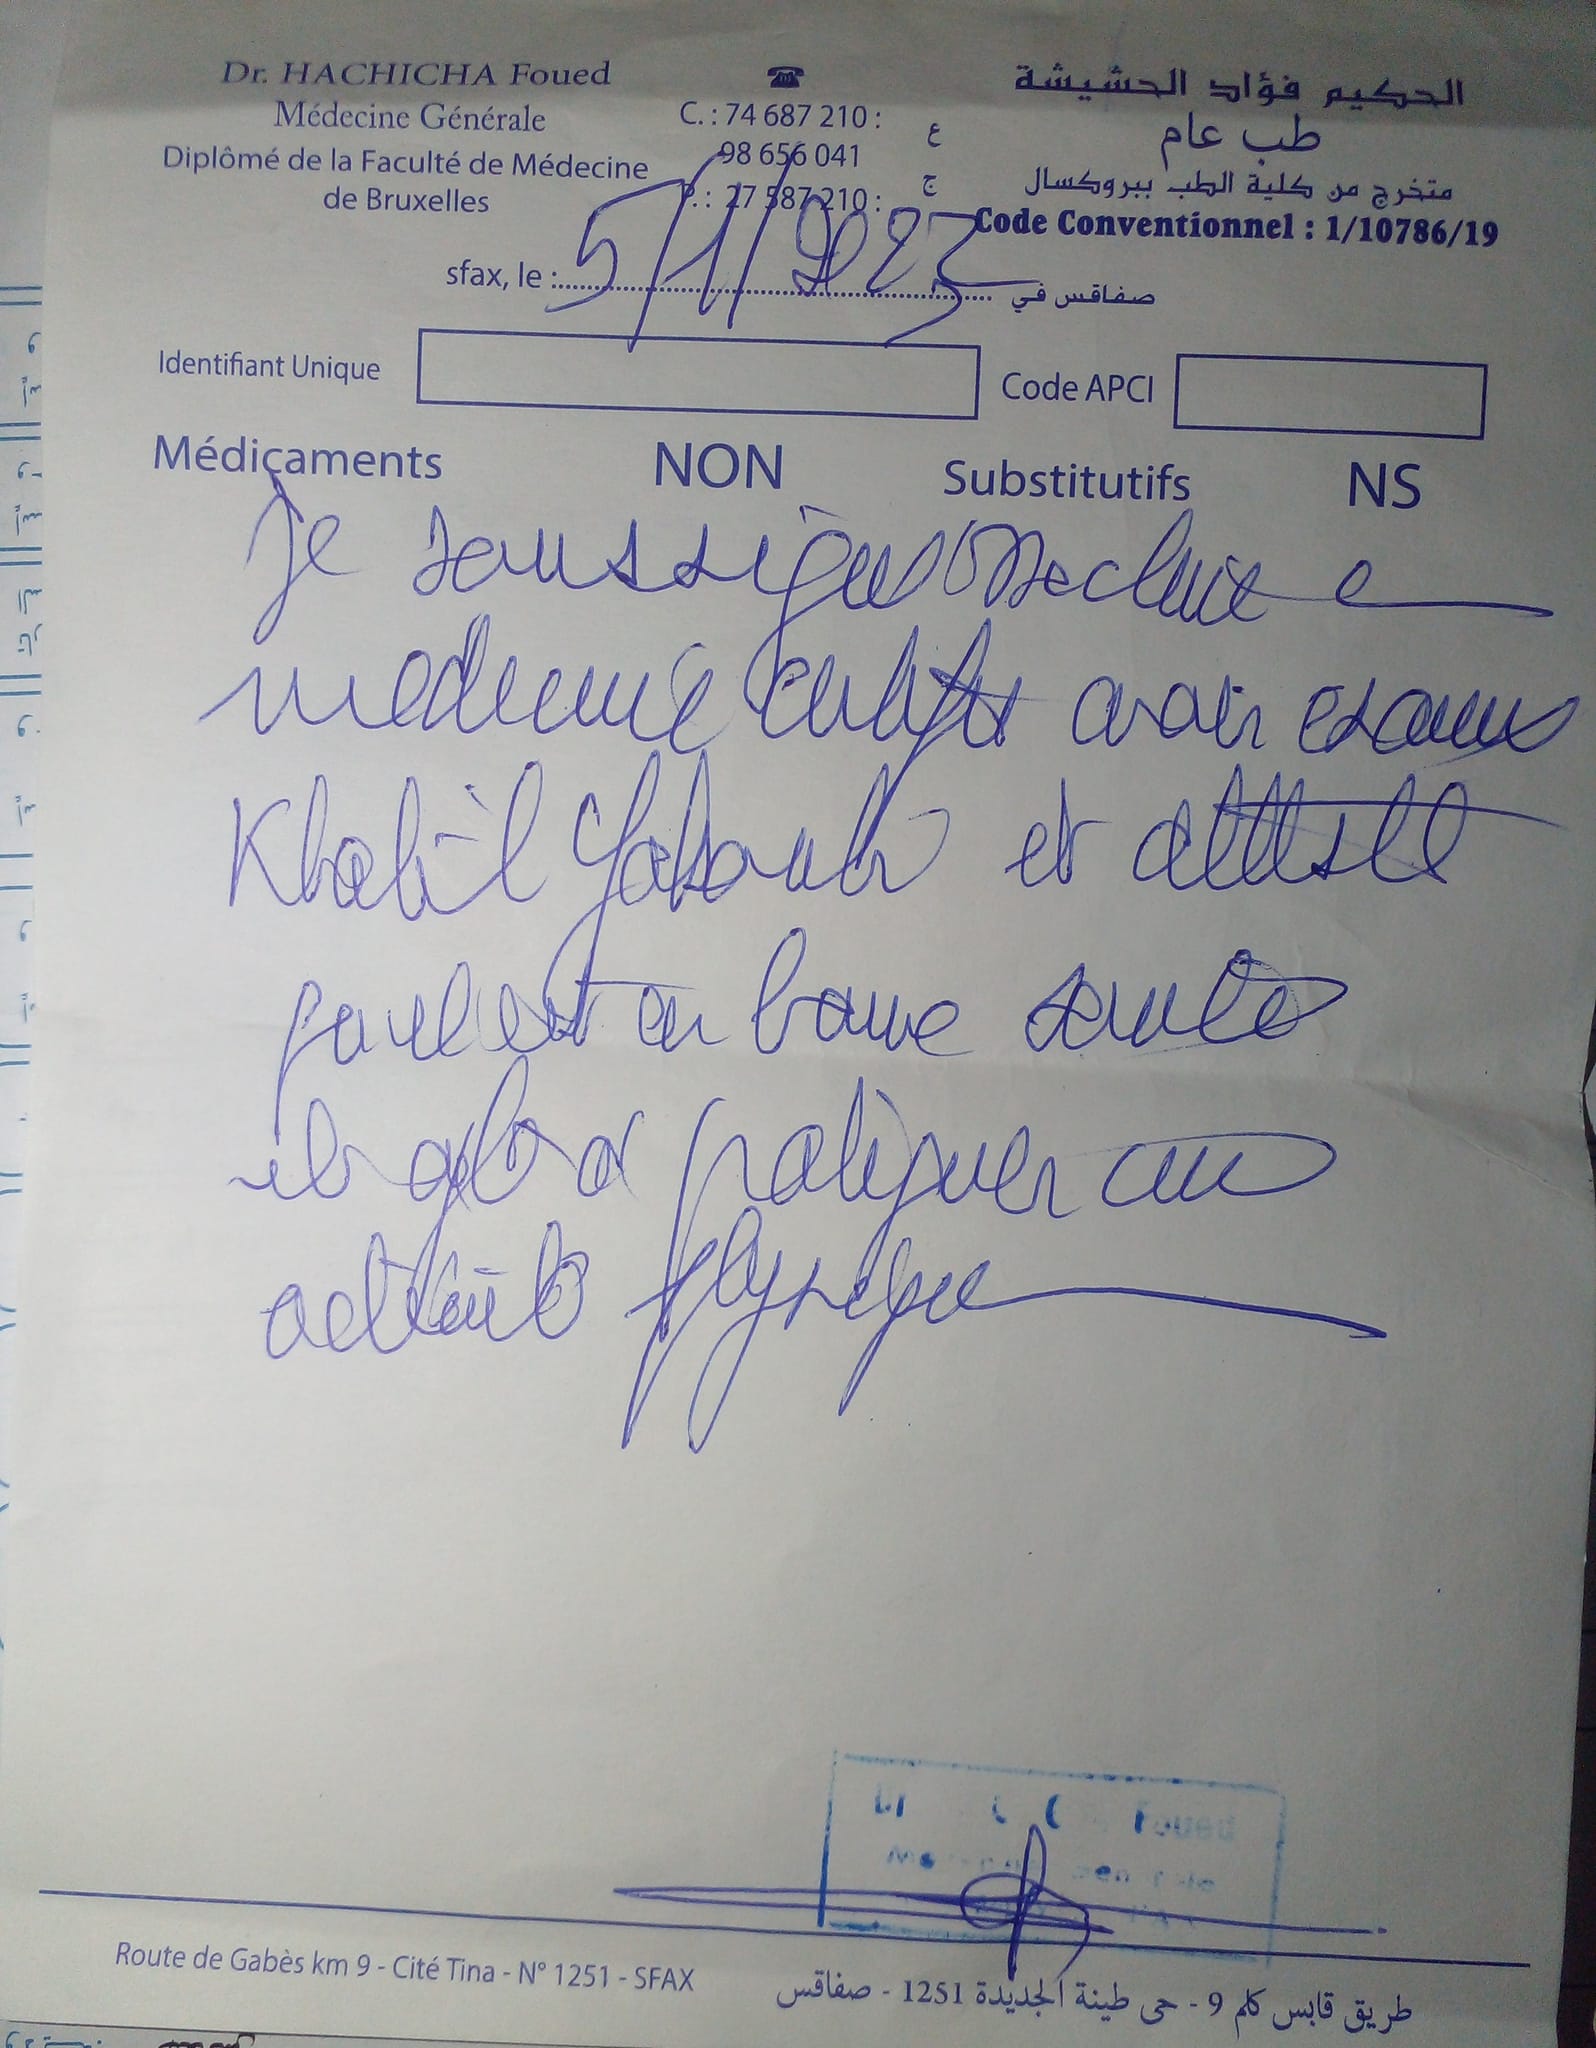 Dr. HACHICHA Foued
Médecine Générale
Diplômé de la Faculté de Médecine
de Bruxelles
C. : 74 687 210 : ع
98 656 041
P. : 27 587 210 : ج
الحكيم فؤاد الحشيشة
طب عام
متخرج من كلية الطب ببروكسال
Code Conventionnel : 1/10786/19
sfax, le : 5/1/2023 صفاقس في
Identifiant Unique Code APCI
Médicaments NON Substitutifs NS
Je soussigné Docteur e
medecine avoir examine
Khalil et atteste
qu'il est en bonne santé
et apte a pratiquer une
activité physique
Foued
Route de Gabès km 9 - Cité Tina - N° 1251 - SFAX
طريق قابس كلم 9 - حي طينة الجديدة 1251 - صفاقس